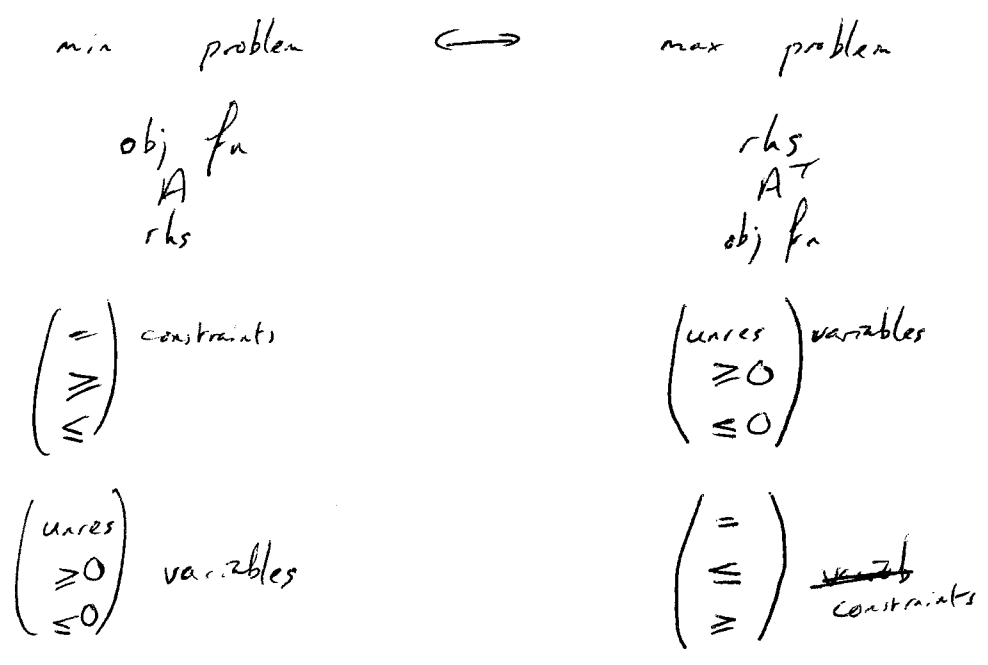 min problem ⟷ max problem
obj fn rhs
A A^T
rhs obj fn
= constraints unres variables
≥ ≥0
≤ ≤0
unres =
≥0 variables ≤ variab
≤0 ≥ constraints